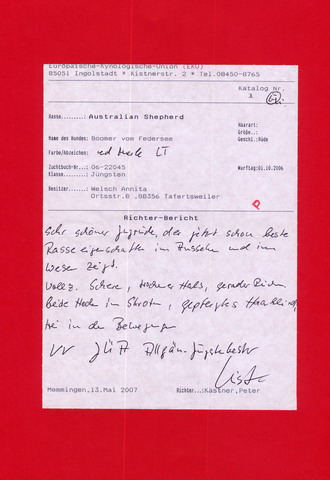 Europäische-Kynologische-Union (EKU)
85051 Ingolstadt * Kistnerstr. 2 * Tel.08450-8765
Katalog Nr.
1
Rasse.......: Australian Shepherd
Haarart:
Größe..:
Name des Hundes: Boomer vom Federsee
Geschl.:Rüde
Farbe/Abzeichen: red Merle LT
Zuchtbuch-Nr..: 06-22045
Wurftag:01.10.2006
Klasse........: Jüngsten
Besitzer......: Welsch Annita
Ortsstr.8 ,88356 Tafertsweiler
P
Richter-Bericht
Sehr schöner Jugrüde, der jetzt schon beste
Rasseeigenschaften im Aussehen und im
Wesen zeigt.
Vollz. Schere, trockener Hals, gerader Rücken.
Beide Hoden im Skrotum, gepflegtes Haarkleid,
frei in den Bewegungen
VV Allgäu-Jüngstenbester
Memmingen,13.Mai 2007
Richter...:Kästner,Peter